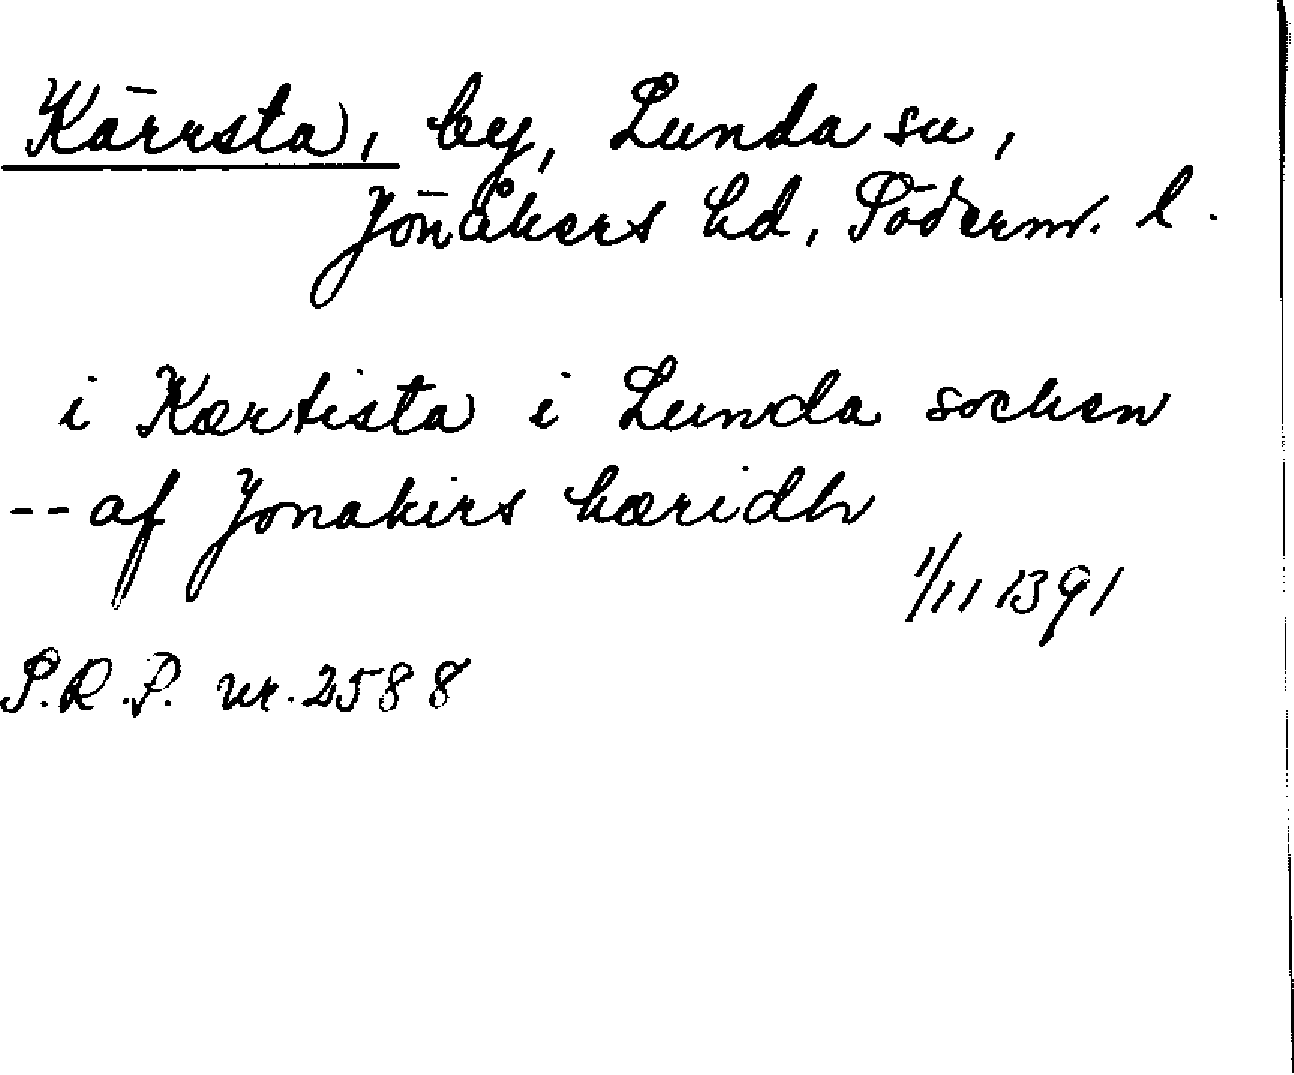 Kärrsta, by, Lunda sn,
Jönåkers hd, Söderm. l.
i Kærtista i Lunda socken
-- af Jonakirs hæridh
1/11 1391
S.R.P. nr. 2588